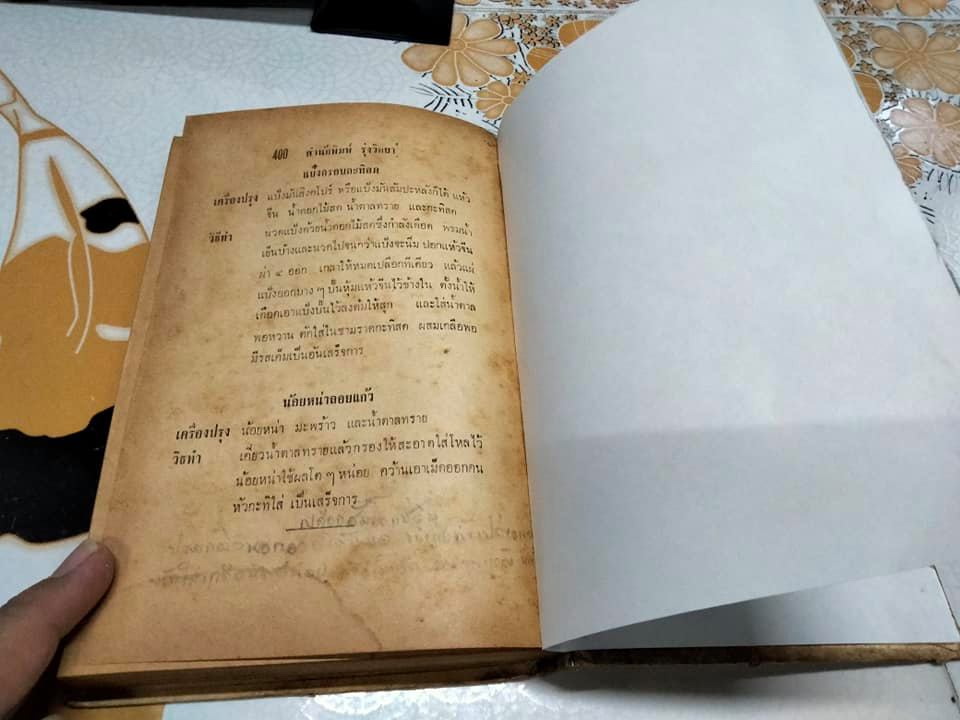 400 สำนักพิมพ์ รุ่งวิทยา
แป้งกรอบกะทิสด
เครื่องปรุง แป้งมันสิงคโปร์ หรือแป้งมันสัมปะหลังก็ได้ แห้ว
จีน น้ำดอกไม้สด น้ำตาลทราย และกะทิสด
วิธีทำ นวดแป้งด้วยน้ำดอกไม้สดซึ่งกำลังเดือด พรมน้ำ
เย็นบ้างและนวดไปจนกว่าแป้งจะนิ่ม ปอกแห้วจีน
ผ่า ๔ ออก เกลาให้หมดเปลือกทีเดียว แล้วแผ่
แป้งออกบาง ๆ ปั้นหุ้มแห้วจีนไว้ข้างใน ตั้งน้ำให้
เดือดเอาแป้งปั้นไว้ลงต้มให้สุก และใส่น้ำตาล
พอหวาน ตักใส่ในชามราดกะทิสด ผสมเกลือพอ
มีรสเค็มเป็นอันเสร็จการ
น้อยหน่าลอยแก้ว
เครื่องปรุง น้อยหน่า มะพร้าว และน้ำตาลทราย
วิธีทำ เคี่ยวน้ำตาลทรายแล้วกรองให้สะอาดใส่โหลไว้
น้อยหน่าใช้ผลโต ๆ หน่อย คว้านเอาเม็ดออกคน
หัวกะทิใส่ เป็นเสร็จการ